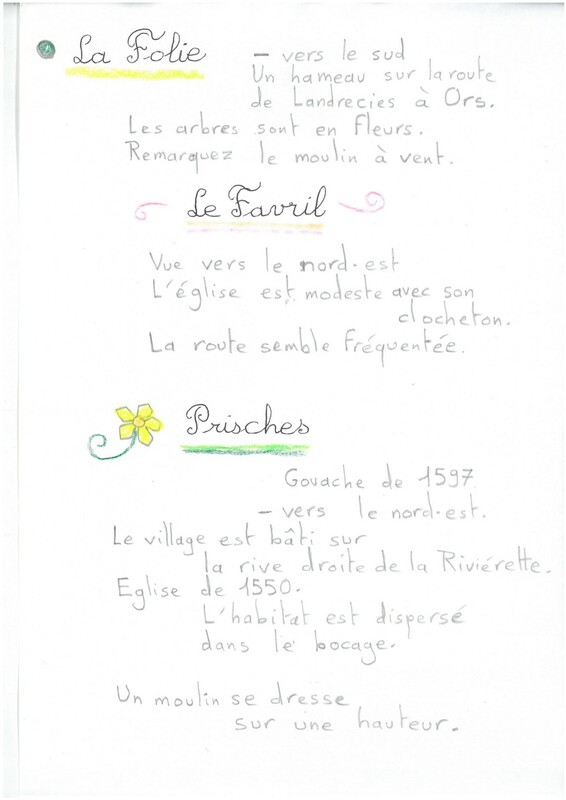 La Folie – vers le sud
Un hameau sur la route
de Landrecies à Ors.
Les arbres sont en fleurs.
Remarquez le moulin à vent.
Le Favril
Vue vers le nord-est
L'église est modeste avec son
clocheton.
La route semble fréquentée.
Prisches
Gouache de 1597
– vers le nord-est.
Le village est bâti sur
la rive droite de la Riviérette.
Eglise de 1550.
L'habitat est dispersé
dans le bocage.
Un moulin se dresse
sur une hauteur.